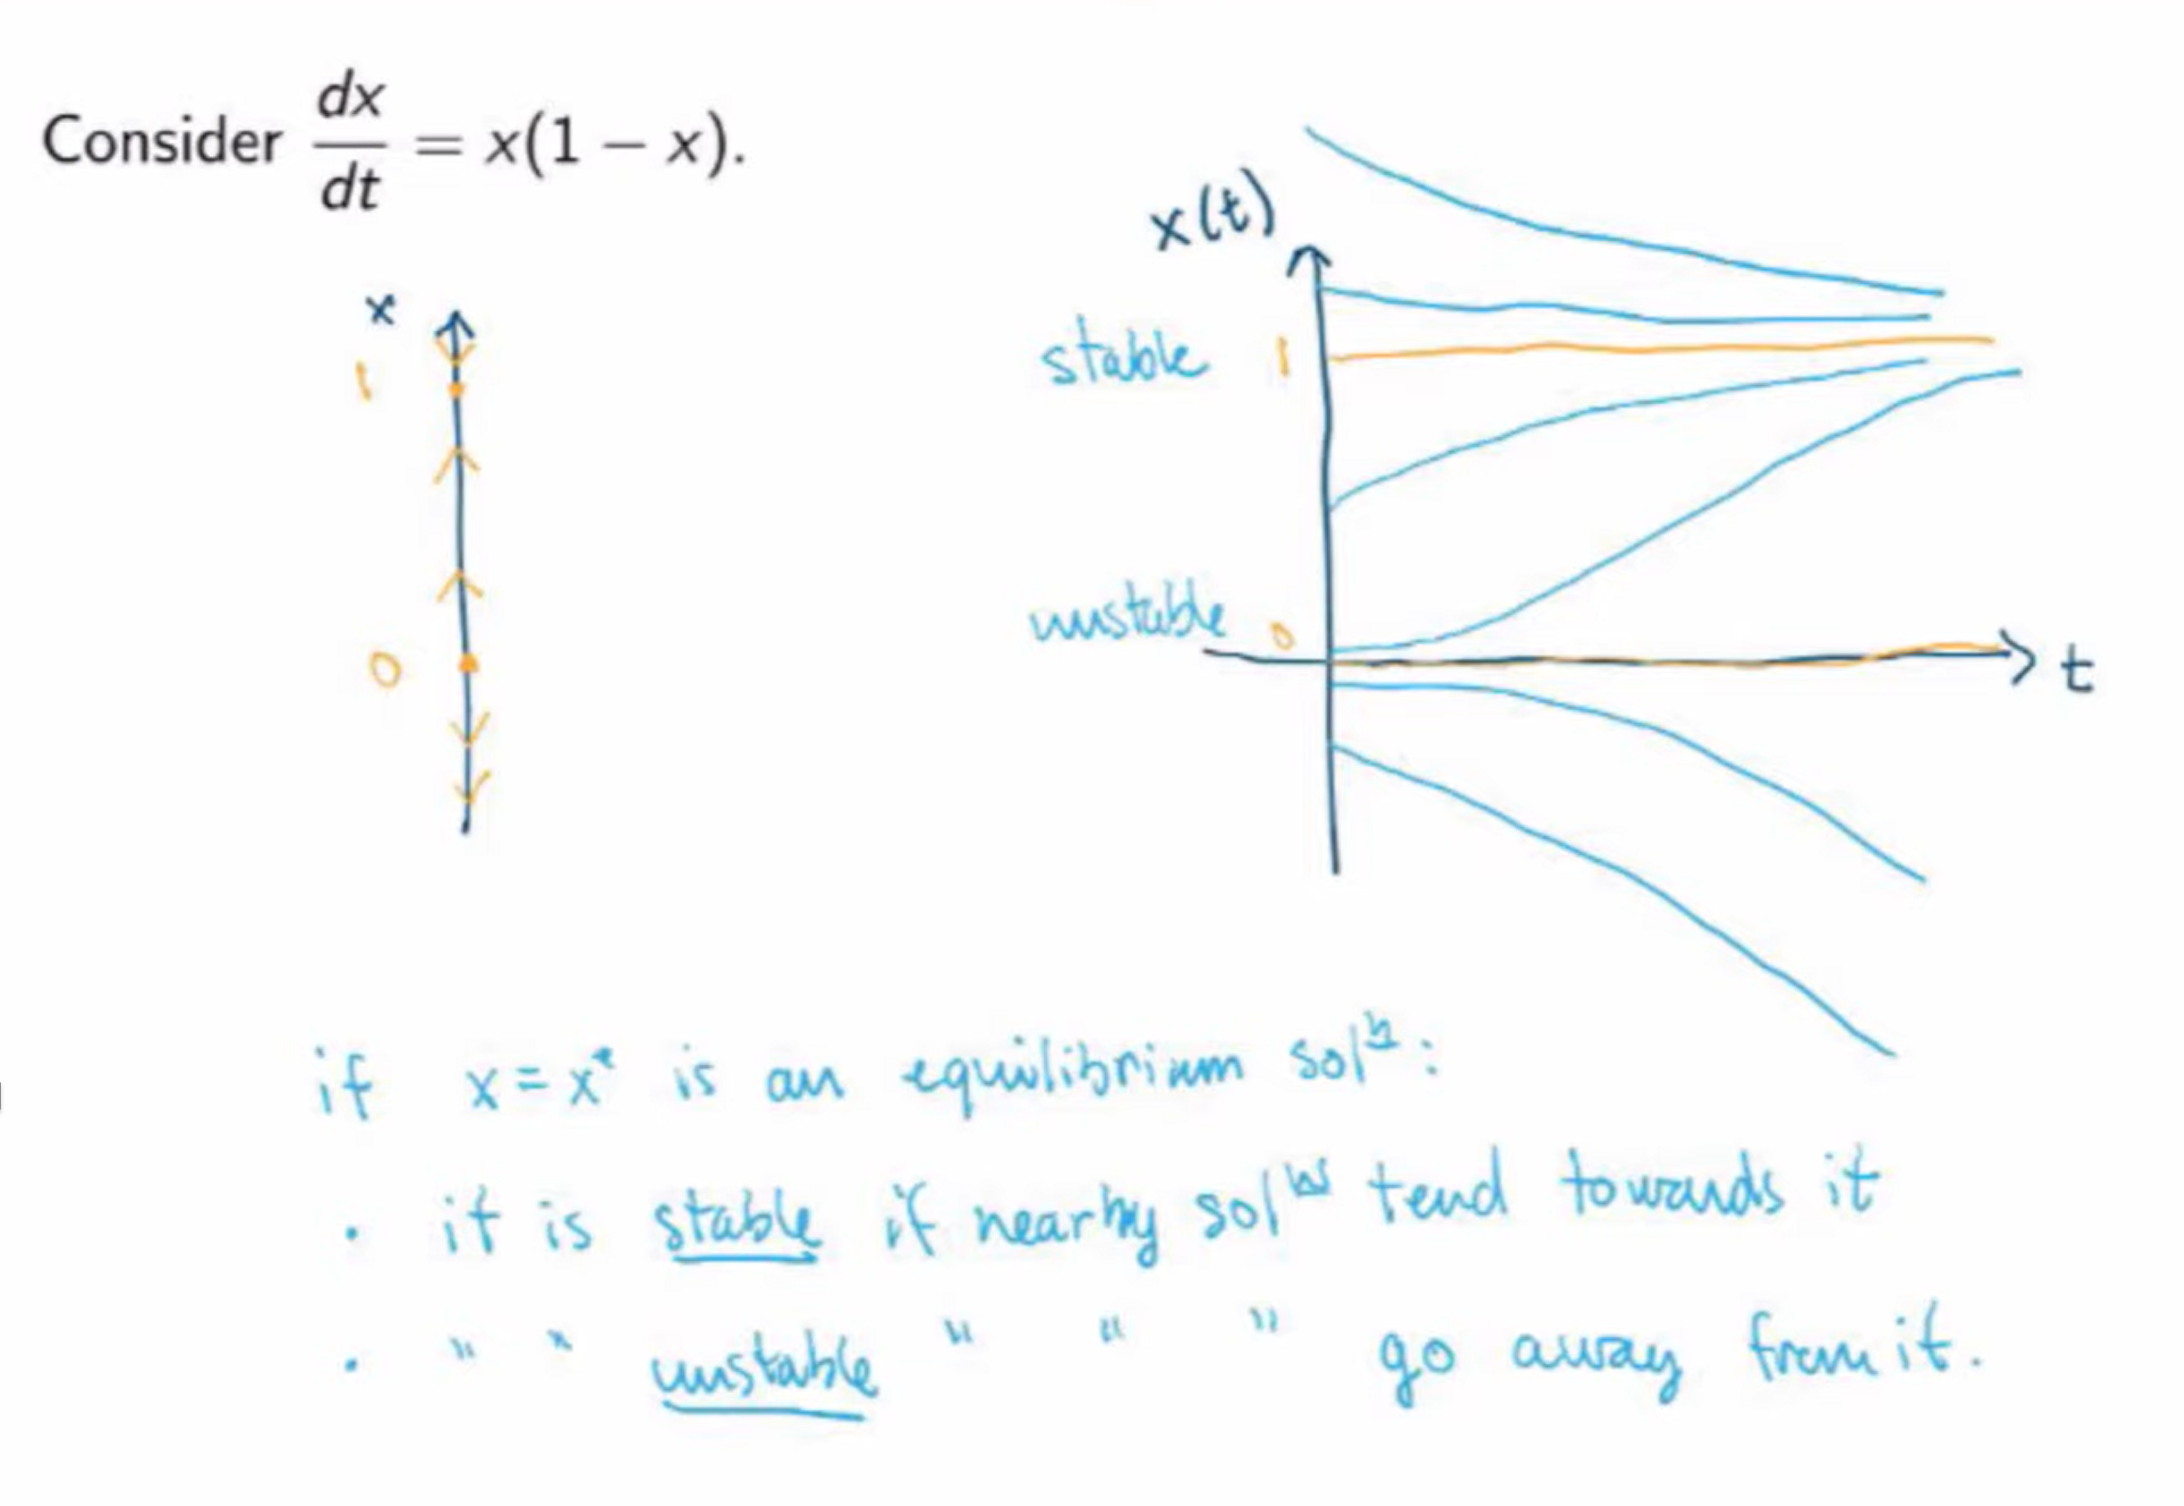 Consider dx/dt = x(1 − x).
x
1
0
x(t)
stable 1
unstable 0
t
if x = x* is an equilibrium solⁿ:
· it is stable if nearby solⁿˢ tend towards it
· " " unstable " " " go away from it.